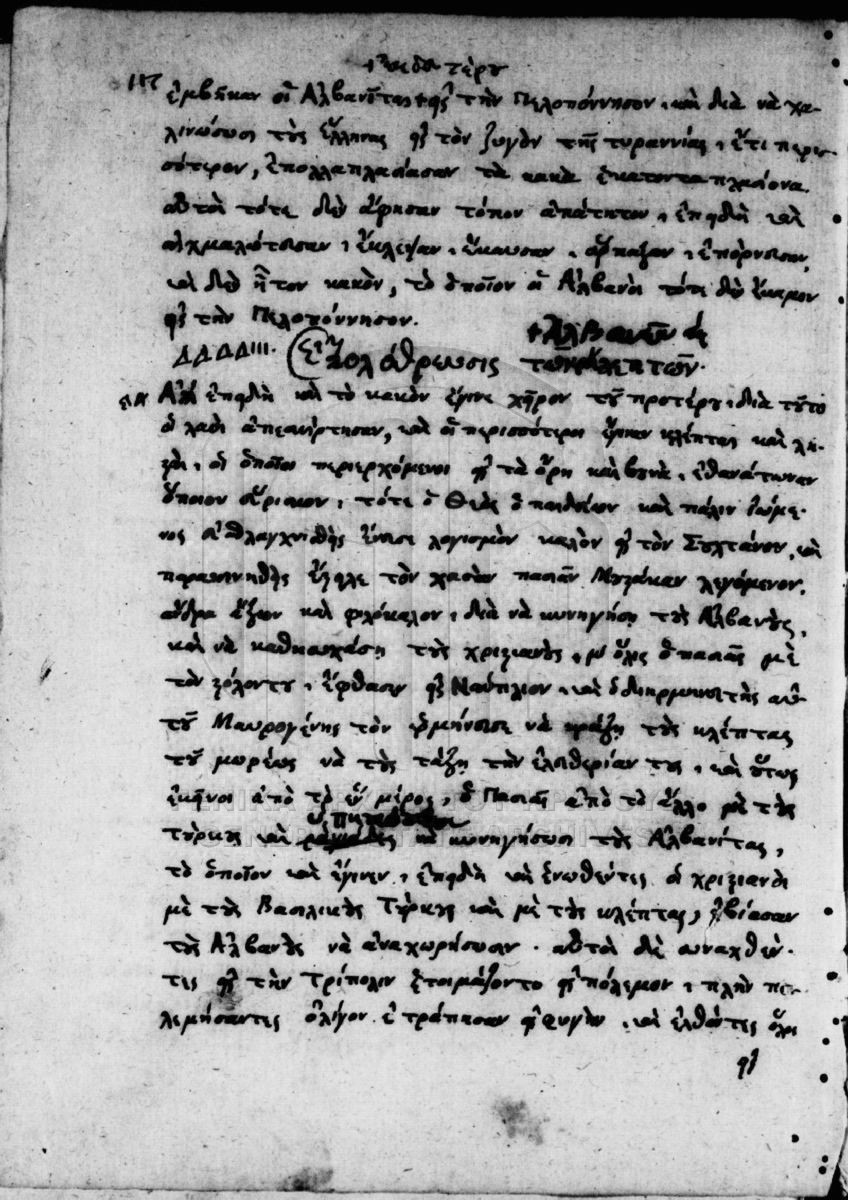 ἐμβῆκαν οἱ Ἀλβανῖται εἰς τὴν Πελοπόννησον, καὶ διὰ νὰ χα-
λινώσωσι τοὺς Ἕλληνας εἰς τὸν ζυγὸν τῆς τυραννίας, ἔτι περισ-
σότερον, ἐπολλαπλασίασαν τὰ κακὰ ἑκατονταπλασίονα.
αὐτοὶ τότε δὲν ἄφησαν τόπον ἀπάτητον, ἐπειδὴ καὶ
αἰχμαλώτισαν, ἔκλεψαν, ἔκαυσαν, ἅρπαξαν, ἐπόρνευσαν,
καὶ δὲν ἦτον κακὸν, τὸ ὁποῖον οἱ Ἀλβανοὶ τότε δὲν ἔκαμον
εἰς τὴν Πελοπόννησον.
+ Ἀλβανῶν καὶ
ΔΔΔΔΙΙΙ. Ἐξολόθρευσις τῶν κλεπτῶν.
ἐπειδὴ καὶ τὸ κακὸν ἔγινε χεῖρον τοῦ προτέρου, διὰ τοῦτο
ὁ λαὸς ἀπεσκίρτησαν, καὶ οἱ περισσότεροι ἔγιναν κλέπται καὶ λη-
σταὶ, οἱ ὁποῖοι περιερχόμενοι εἰς τὰ ὄρη καὶ βουνὰ, ἐθανάτωναν
ὅποιον εὕρισκον, τότε ὁ Θεὸς ὁ παιδεύων καὶ πάλιν ἰώμε-
νος εὐσπλαγχνισθεὶς ἔνευσε λογισμὸν καλὸν εἰς τὸν Σουλτάνον, καὶ
παρακινηθεὶς ἔστειλε τὸν χασὰν πασιᾶν λεγόμενον,
ἄνδρα ἄξιον καὶ φιλόκαλον, διὰ νὰ κυνηγήσῃ τοὺς Ἀλβανοὺς,
καὶ νὰ καθησυχάσῃ τοὺς χριστιανοὺς, ὁ πασιᾶς μὲ
τὸν στόλον του, ἔφθασεν εἰς Ναύπλιον, καὶ ὁ διερμηνευτὴς αὐ-
τοῦ Μαυρογένης τὸν ἑρμήνευσε νὰ κράξῃ τοὺς κλέπτας
τοῦ μωρέως νὰ τοὺς τάξῃ τὴν ἐλευθερίαν τους, καὶ οὕτως
ἐκεῖνοι ἀπὸ τὸ ἓν μέρος, ὁ Πασιᾶς ἀπὸ τὸ ἄλλο μὲ τοὺς
τούρκους καὶ νὰ κυνηγήσωσι τοὺς Ἀλβανίτας,
τὸ ὁποῖον καὶ ἔγινεν, ἐπειδὴ καὶ ἑνωθέντες οἱ χριστιανοὶ
μὲ τοὺς Βασιλικοὺς Τούρκους καὶ μὲ τοὺς κλέπτας, ἐβίασαν
τοὺς Ἀλβανοὺς νὰ ἀναχωρήσωσιν. αὐτοὶ δὲ συναχθέν-
τες εἰς τὴν Τρίπολιν ἑτοιμάζοντο εἰς πόλεμον, πλὴν πο-
λεμήσαντες ὀλίγον ἐτράπησαν εἰς φυγὴν, καὶ ἐλθόντες ὅλοι
εἰς